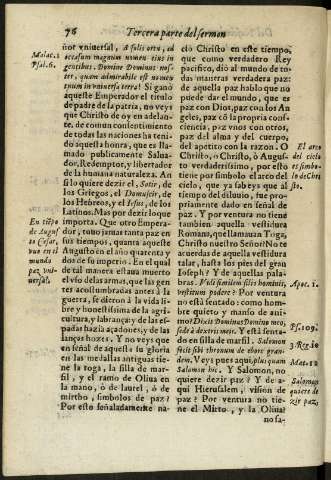 76 Tercera parte del sermon
ñor vniuersal, A solis ortu, ad
occasum magnum nomen eius in
gentibus. Domine Dominus nos-
ter, quam admirabile est nomen
tuum in vniuersa terra! Si ganò
aqueste Emperador el titulo
de padre de la patria, no veys
que Christo de oy en adelan-
te, de comun consentimiento
de todas las naciones ha teni-
do aquesta honra, que es lla-
mado publicamente Salua-
dor, Redemptor, y libertador
de la humana naturaleza. An
si lo quiere dezir el, Sotir, de
los Griegos, el
de los Hebreos, y el Iesus, de los
Latinos. Mas por dezir lo que
importa. Que otro Empera-
dor, tuuo jamas tanta paz en
sus tiempos, quanta aqueste
Augusto en el año quarenta y
dos de su imperio. En el qual
de tal manera estaua muerto
el vso de las armas, que las gen
tes acostumbradas antes à la
guerra, se dieron à la vida li-
bre y honestissima de la agri-
cultura, y labrança: y de las es-
padas hazia açadones, y de las
lanças hozes. Y no veys que
en señal de aquesta su gloria
en las medallas antiguas tie-
ne la toga, la silla de mar-
fil, y el ramo de Oliua en
la mano, ò de laurel, ò de
mirtho, simbolos de paz?
Por esto señaladamente na-
Malac.1
Psal.6.
En tiẽpo
de Augus
to Cesar,
vuo en el
mundo
paz vni-
uersal.
cio Christo en este tiempo,
que como verdadero Rey
pacifico, diò al mundo de to-
das maneras verdadera paz:
de aquella paz hablo que no
la puede dar el mundo, que es
paz con Dios, paz con los An
geles, paz cõ la propria con-
sciencia, paz vnos con otros,
paz del alma y del cuerpo,
del apetito con la razon. O
Christo, o Christo, ò Augus-
to verdaderissimo, por esto
tiene por simbolo el arco del
cielo, que ya sabeys que al
tiempo del diluuio, fue pro-
priamente dado en señal de
paz. Y por ventura no tiene
tambien aquella vestidura
Romana, que llamauan Toga,
Christo nuestro Señor? No te
acuerdas de aquella vestidura
talar, hasta los pies del gran
Ioseph? Y de aquellas pala-
bras. Vidi similem filio hominis,
vestitum podere? Y por ventura
no està sentado: como hom-
bre quieto y manso de ani-
mo? Dixit Dominus Domino meo,
sede à dextris meis. Y està senta-
do en silla de marfil. Salomon
fecit sibi thronum de ebore gran-
dem. Veys pues aqui, plus quam
Salomon hic. Y Salomon, no
quiere dezir paz? Y de a-
qui Hierusalem, vision de
paz? Por ventura no tie-
ne el Mirto, y la Oliua?
no sa-
El arco
del cielo
es simbo
lo de Chris
to.
Apoc. 1.
Ps.109.
3.Reg.10
Mat.12
Salomon
quiere de
zir paz.